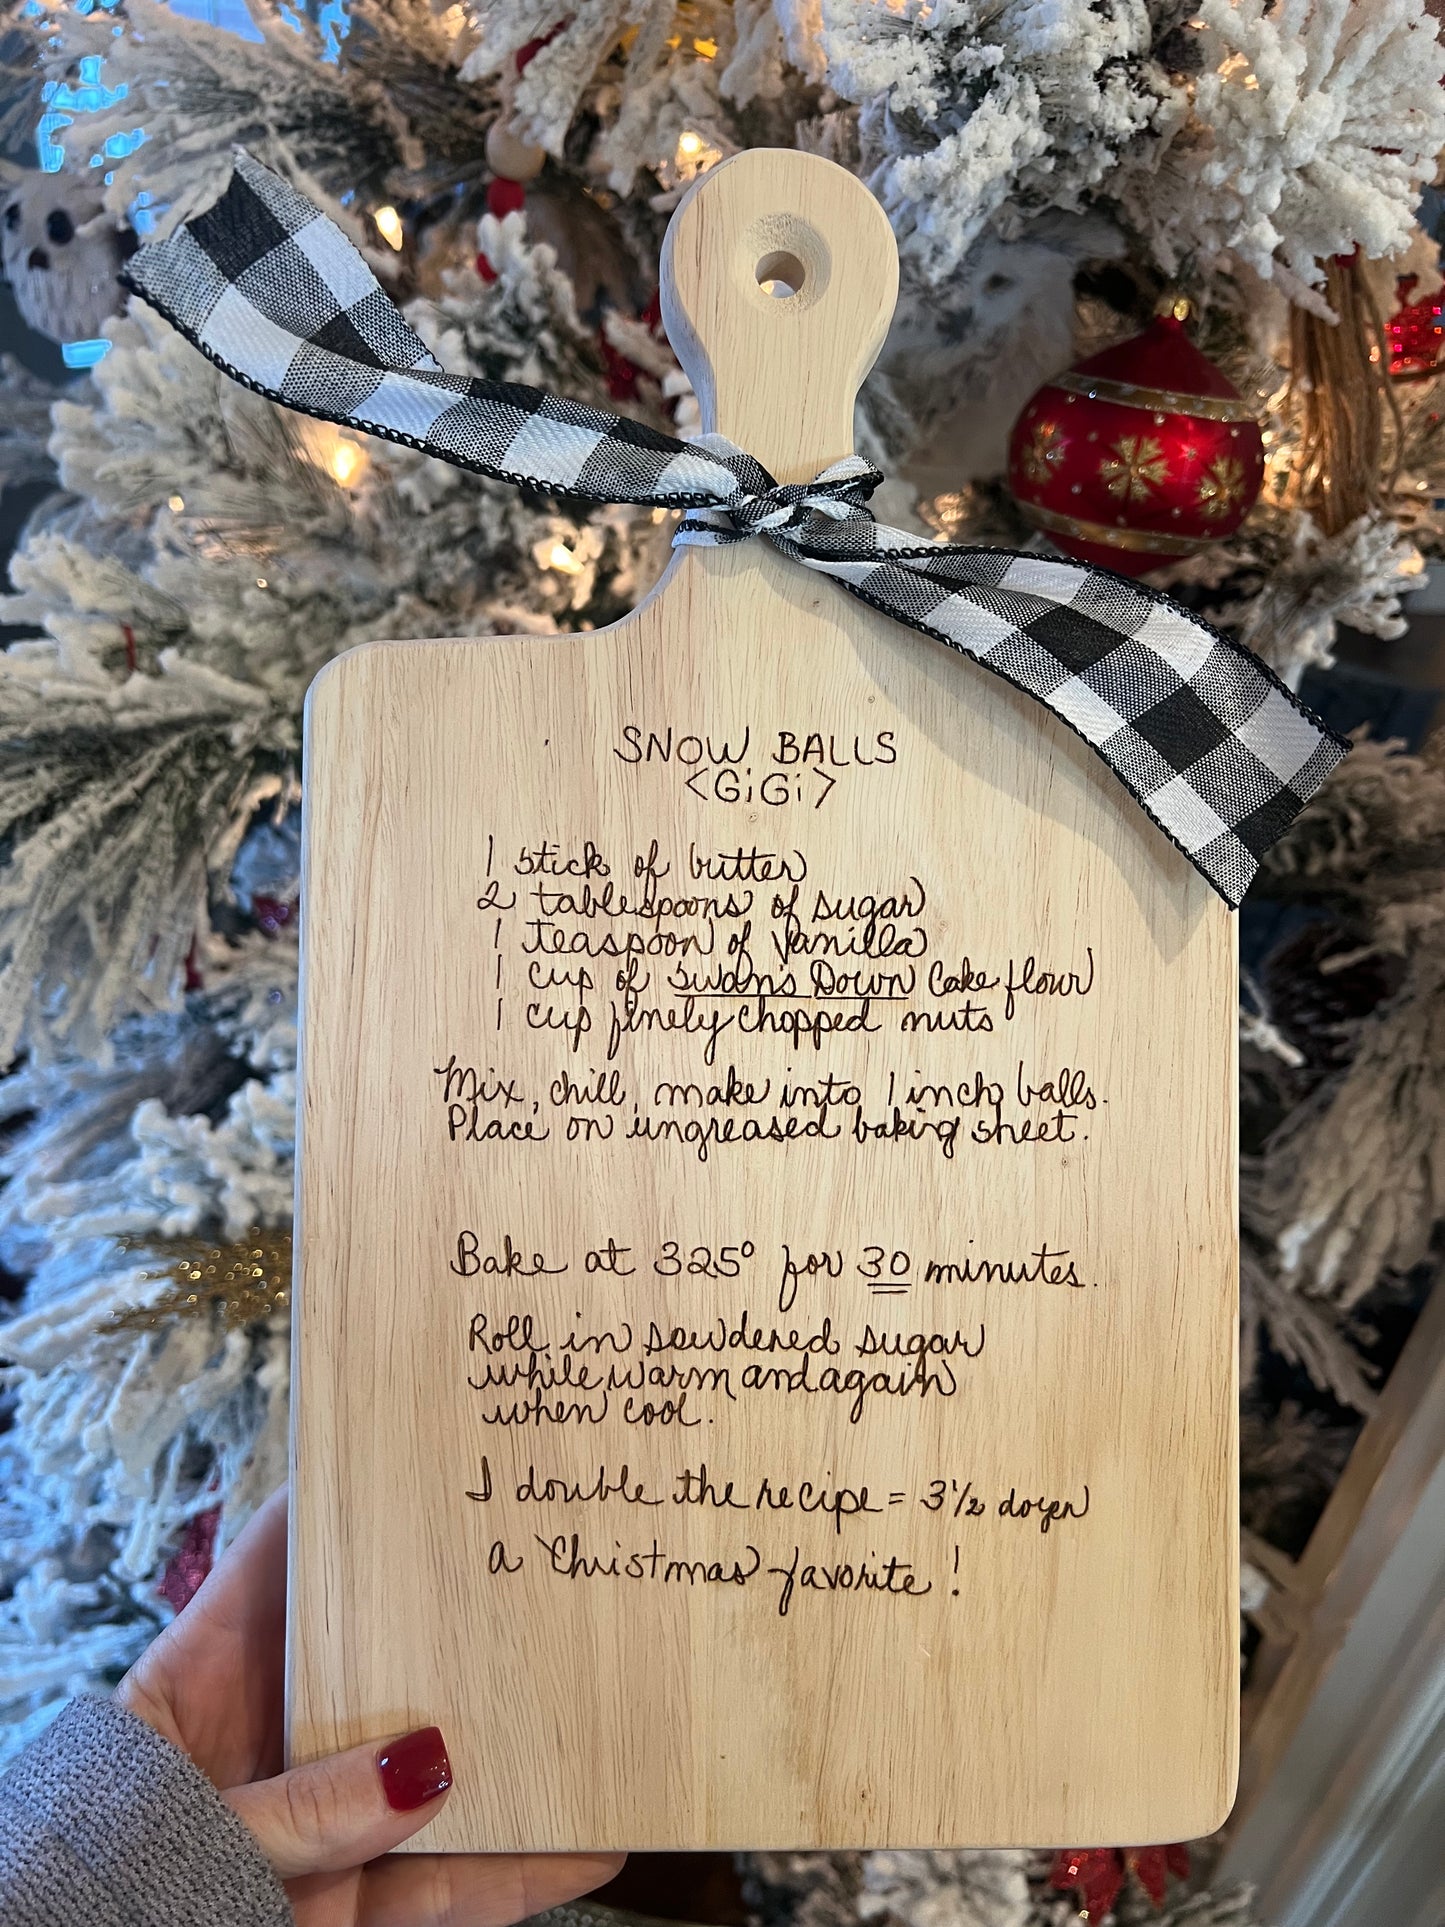 SNOW BALLS
<GiGi>
1 stick of butter
2 tablespoons of sugar
1 teaspoon of Vanilla
1 cup of Swan's Down Cake flour
1 cup finely chopped nuts
Mix, chill, make into 1 inch balls.
Place on ungreased baking sheet.
Bake at 325° for 30 minutes.
Roll in powdered sugar
while warm and again
when cool.
I double the recipe = 3 1/2 dozen
a Christmas favorite!